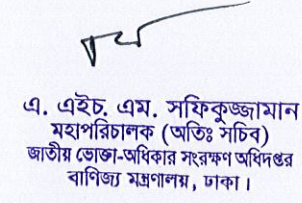 এ. এইচ. এম. সফিকুজ্জামান
মহাপরিচালক (অতিঃ সচিব)
জাতীয় ভোক্তা-অধিকার সংরক্ষণ অধিদপ্তর
বাণিজ্য মন্ত্রণালয়, ঢাকা।